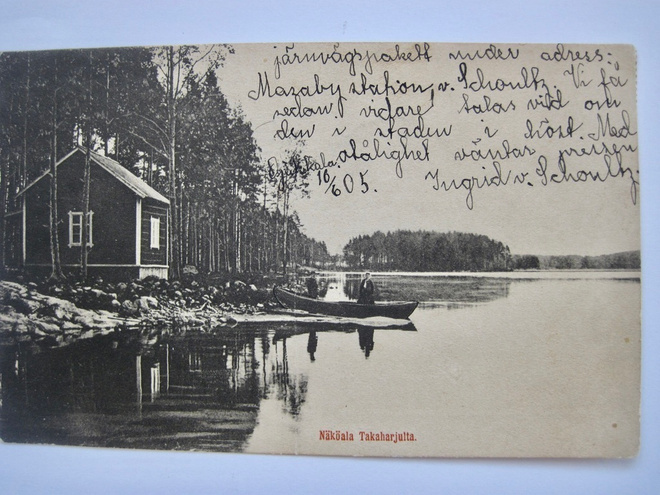 järnvägspakett under adress:
Mazaby station, v. Schoultz. Vi få
sedan vidare talas vid om
den i staden i höst. Med
otålighet väntar pressen
16/6 05. Ingrid v. Schoultz.
Näköala Takaharjulta.